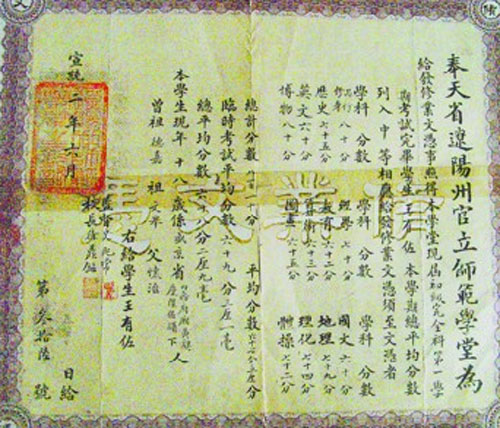 奉天省遼陽州官立師範學堂為
給發修業文憑事照得本學堂現屆初級完全科第一學
期考試完畢學生王有佐 本學期總平均分數
列入中等相應給發修業文憑須至文憑者
學科 分數 學科 分數 學科 分數
八十分 經學 七十分 國文 六十分
歷史 六十五分 教育 六十二分 地理 七十九分
英文 六十分 算術 六十三分 理化 七十四分
博物 八十分 圖畫 六十五分 體操 七十二分
總計分數 平均分數 分
臨時考試平均分數 六十九分三厘一毫
總平均分數 六十八分二厘九毫
本學生現年十八歲係盛京省 人
曾祖德嘉 祖 父懷治
右給學生王有佐
校長
宣統二年六月 日給
第叁拾陸號
修業文憑